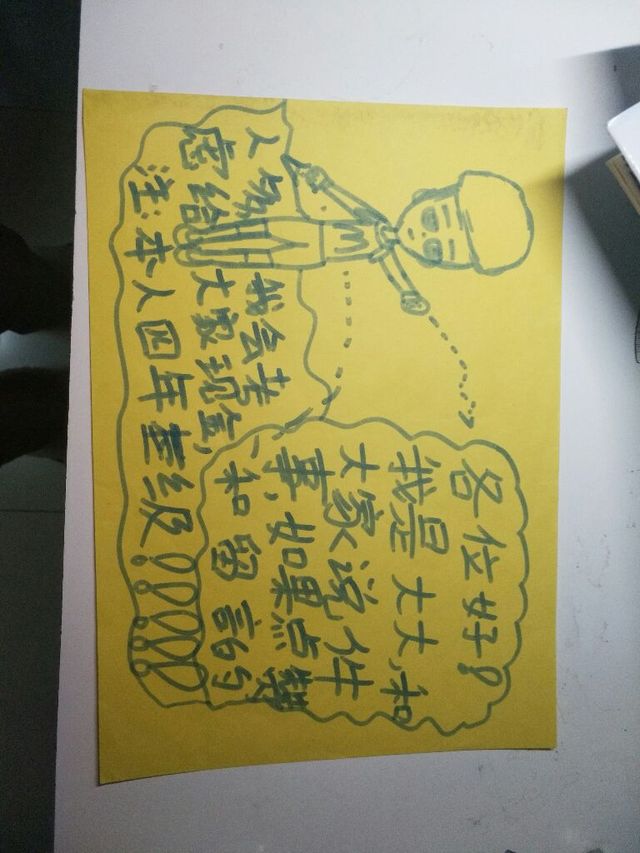 各位好！
我是大大,和
大家说件
事,如果点赞
和留言的
人多我会考
虑给大家现金,
注:本人四年级！！！！！
M